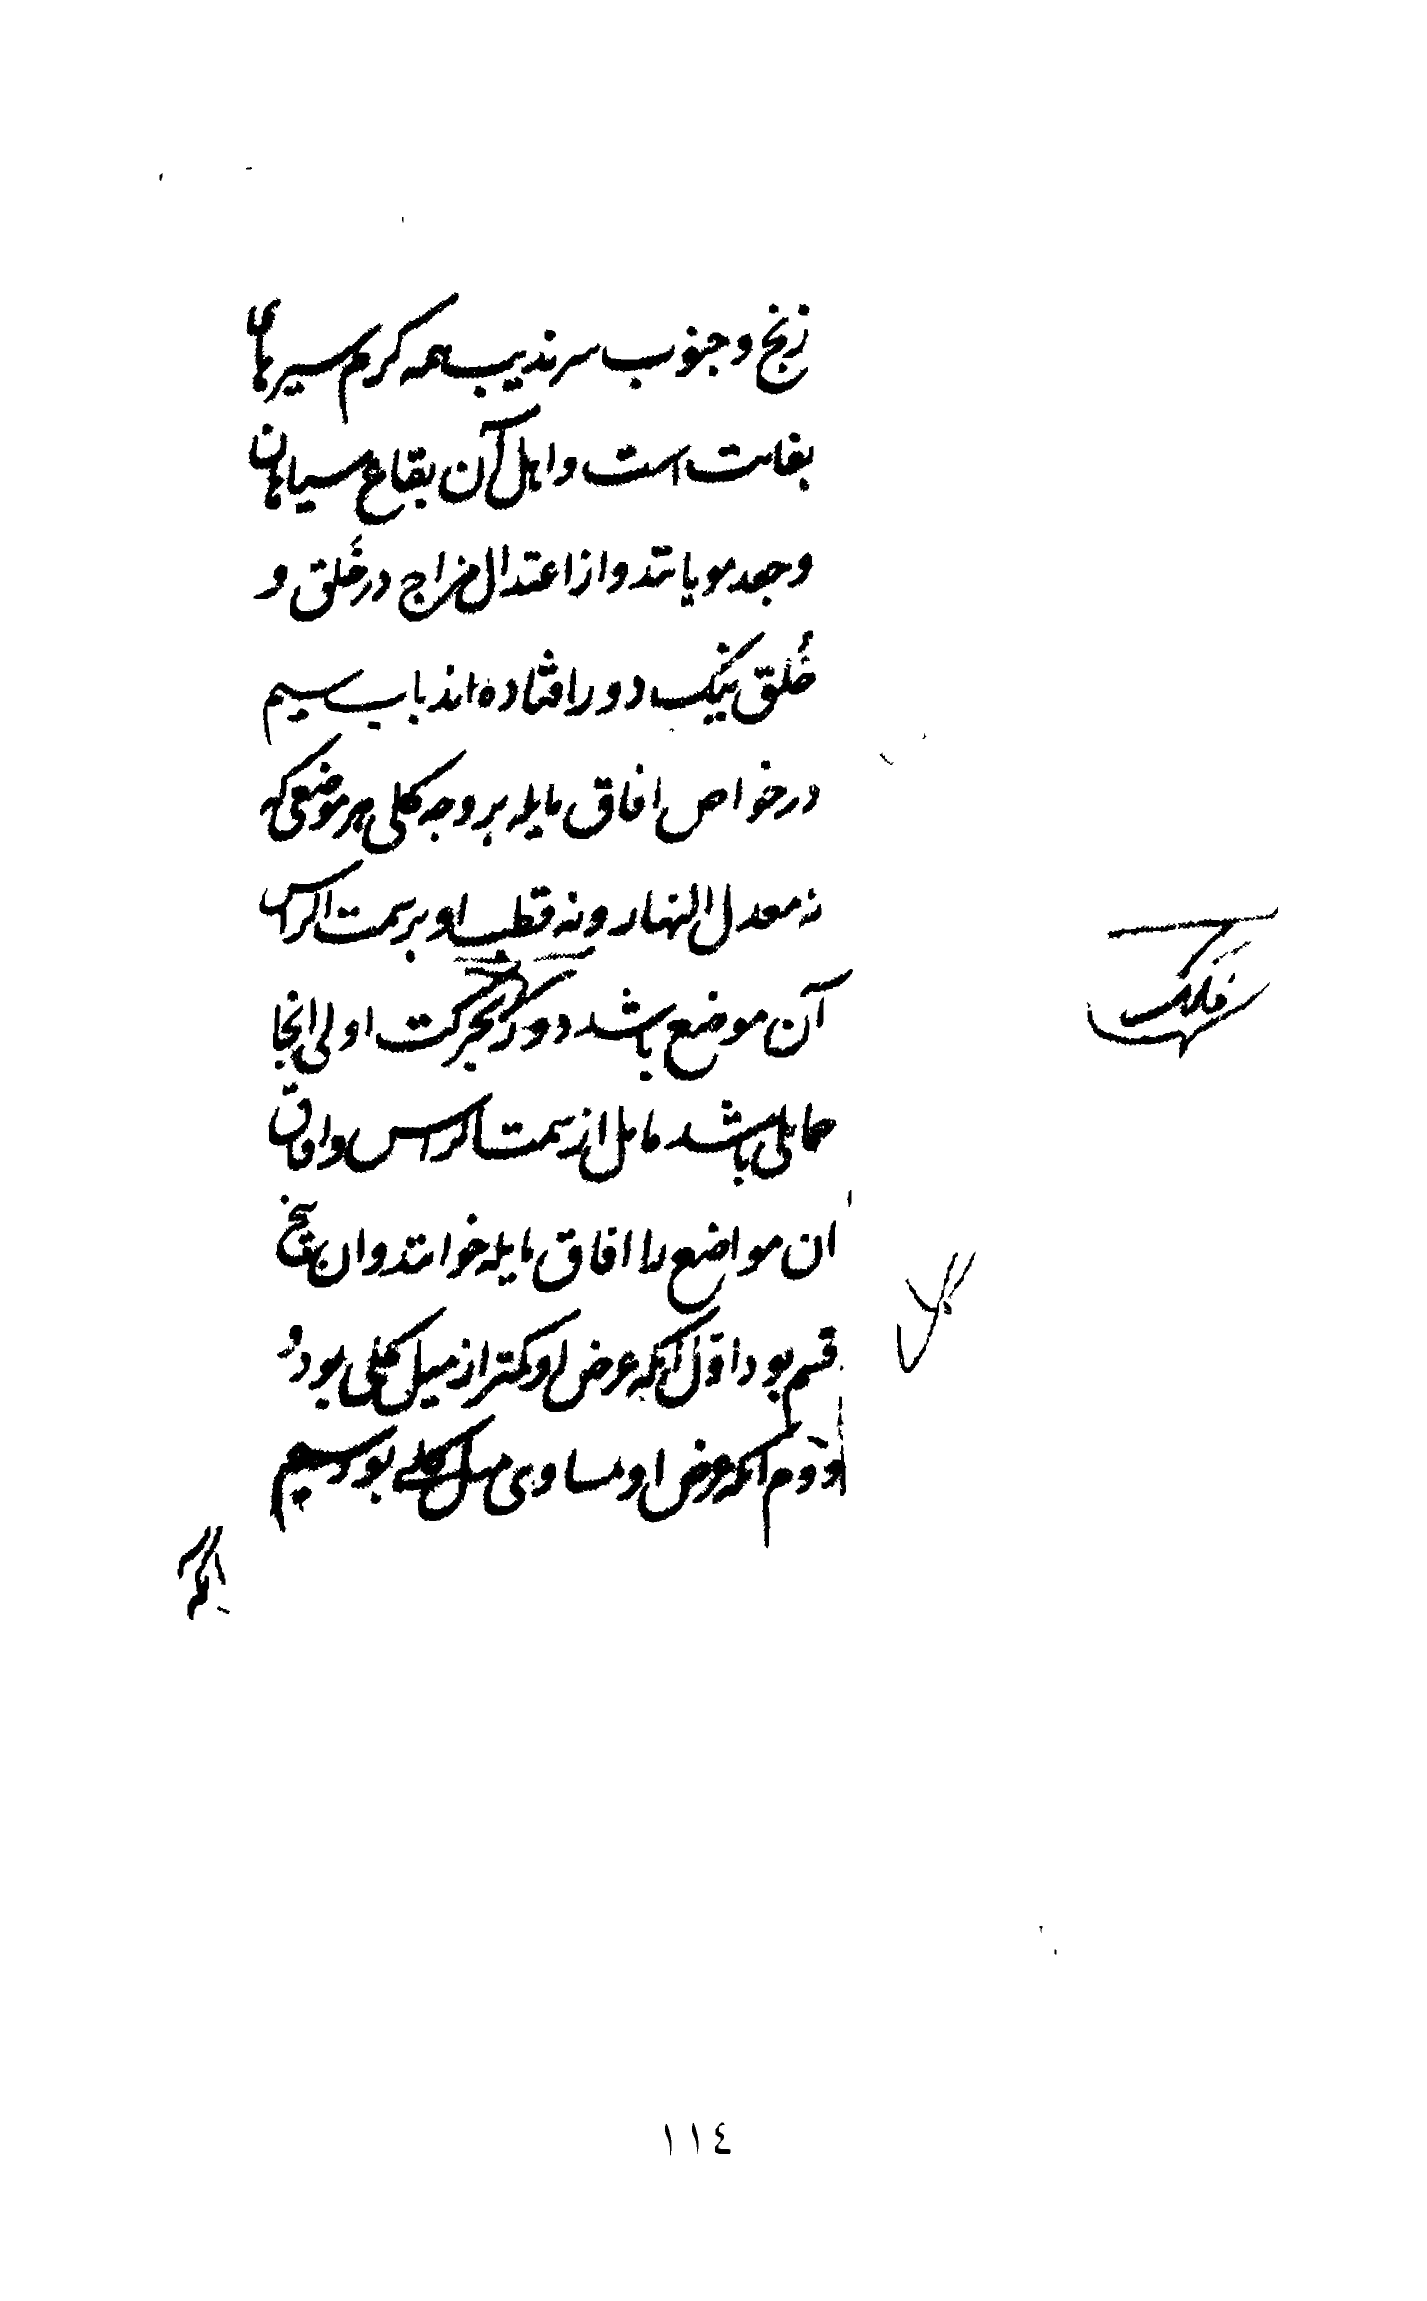 زنج و جنوب سرندیب همه کرم سیرهای
بغایت است و اهل آن بقاع سیاهان
و جعد مویانند و از اعتدال مزاج در خَلق و
خُلق نیک دور افتاده اند باب سیم
در خواص افاق مایله بر وجه کلی هر موضعی که
نه معدل النهار و نه قطب او بر سمت الراس
آن موضع باشد دور فلک بحرکت اولی انجا
حمایلی باشد مایل از سمت الراس و افاق
ان مواضع را افاق مایله خوانند و ان بر پنج
قسم بود اوّل آنکه عرض او کمتر از میل کلی بود و
دوّم انکه عرض او مساوی میل کلی بود سیم
انکه
فلک
١١٤